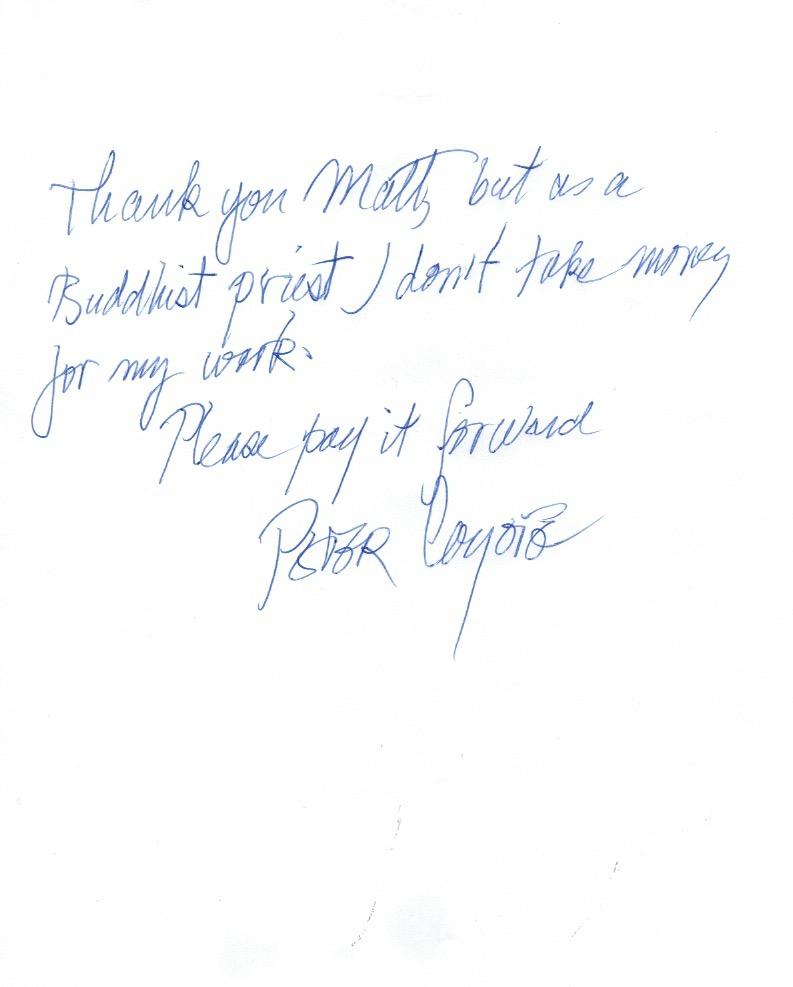 Thank you Matt, but as a
Buddhist priest I don't take money
for my work.
Please pay it forward
PETER Coyote